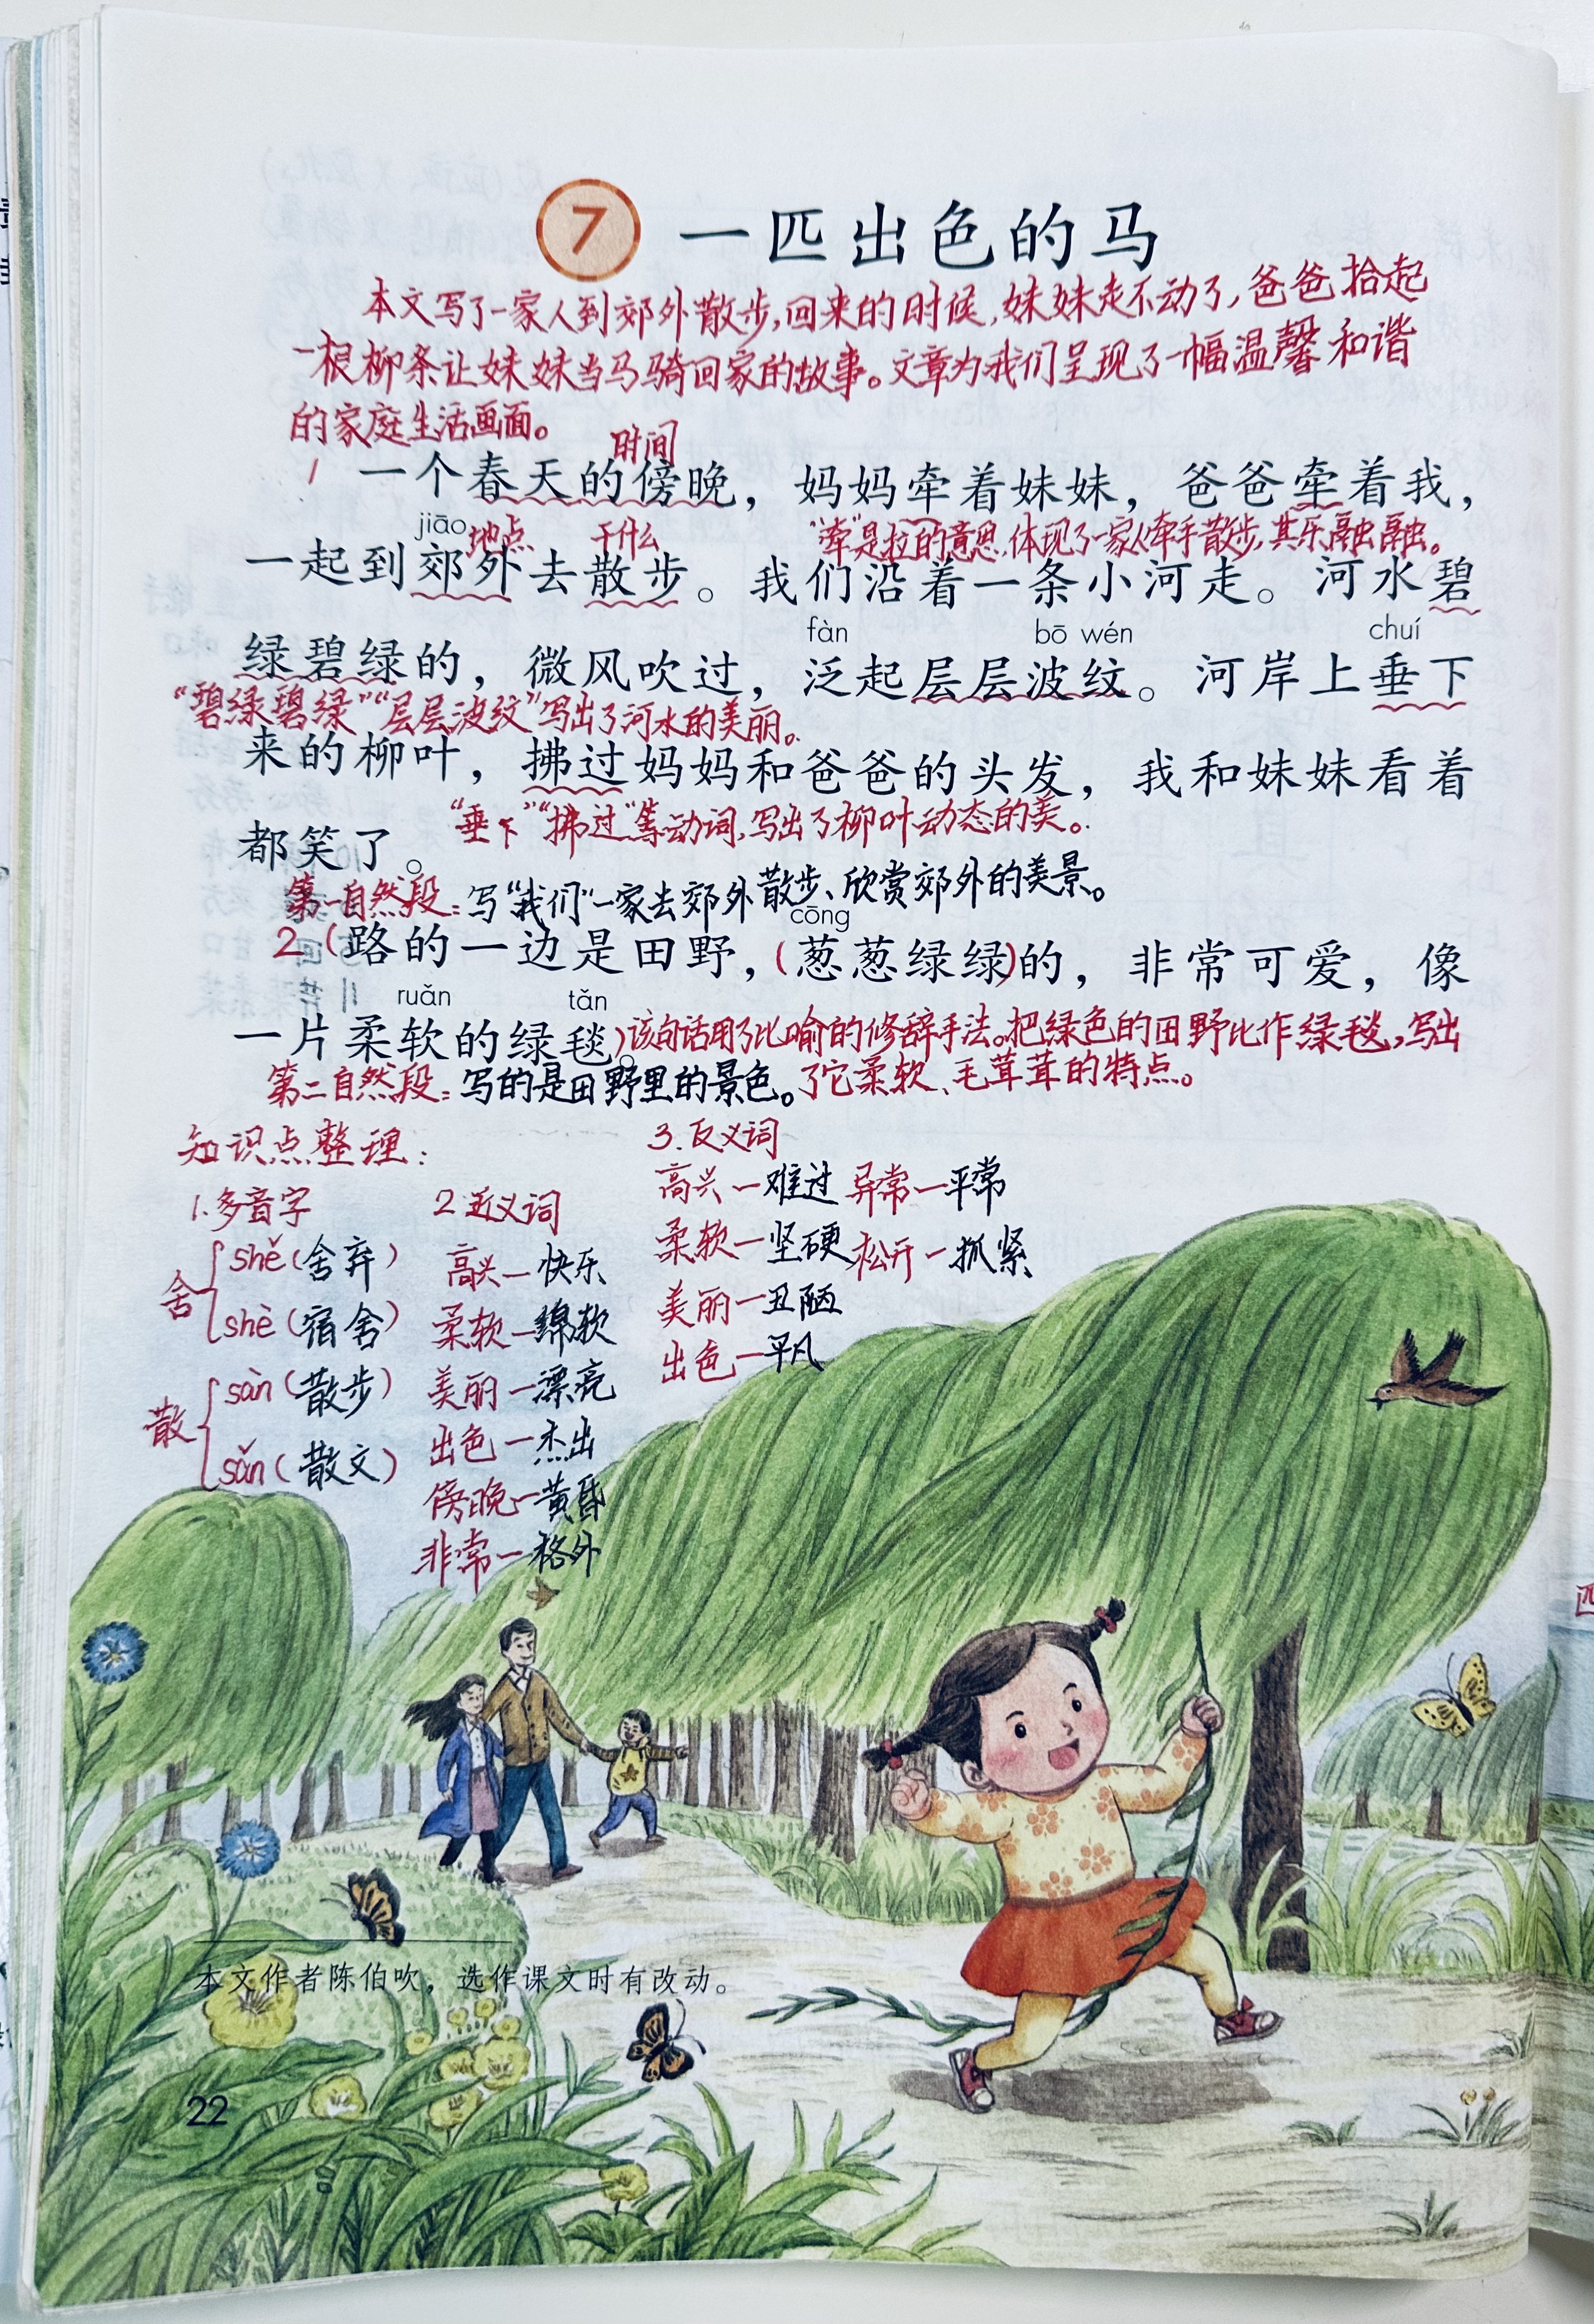 7 一匹出色的马
本文写了一家人到郊外散步,回来的时候,妹妹走不动了,爸爸拾起
一根柳条让妹妹当马骑回家的故事。文章为我们呈现了一幅温馨和谐
的家庭生活画面。
时间
1 一个春天的傍晚，妈妈牵着妹妹，爸爸牵着我，
jiāo 地点 干什么 “牵”是拉的意思,体现了一家人牵手散步,其乐融融。
一起到郊外去散步。我们沿着一条小河走。河水碧
fàn bō wén chuí
绿碧绿的，微风吹过，泛起层层波纹。河岸上垂下
“碧绿碧绿”“层层波纹”写出了河水的美丽。
来的柳叶，拂过妈妈和爸爸的头发，我和妹妹看着
“垂下”“拂过”等动词,写出了柳叶动态的美。
都笑了。
第一自然段:写“我们”一家去郊外散步、欣赏郊外的美景。
cōng
2 (路的一边是田野，(葱葱绿绿)的，非常可爱，像
ruǎn tǎn
一片柔软的绿毯。)该句话用了比喻的修辞手法。把绿色的田野比作绿毯,写出
第二自然段:写的是田野里的景色。了它柔软、毛茸茸的特点。
知识点整理:
1.多音字
舍
shě(舍弃)
shè(宿舍)
散
sàn(散步)
sǎn(散文)
2 近义词
高兴—快乐
柔软—绵软
美丽—漂亮
出色—杰出
傍晚—黄昏
非常—格外
3.反义词
高兴—难过 异常—平常
柔软—坚硬 松开—抓紧
美丽—丑陋
出色—平凡
本文作者陈伯吹，选作课文时有改动。
22